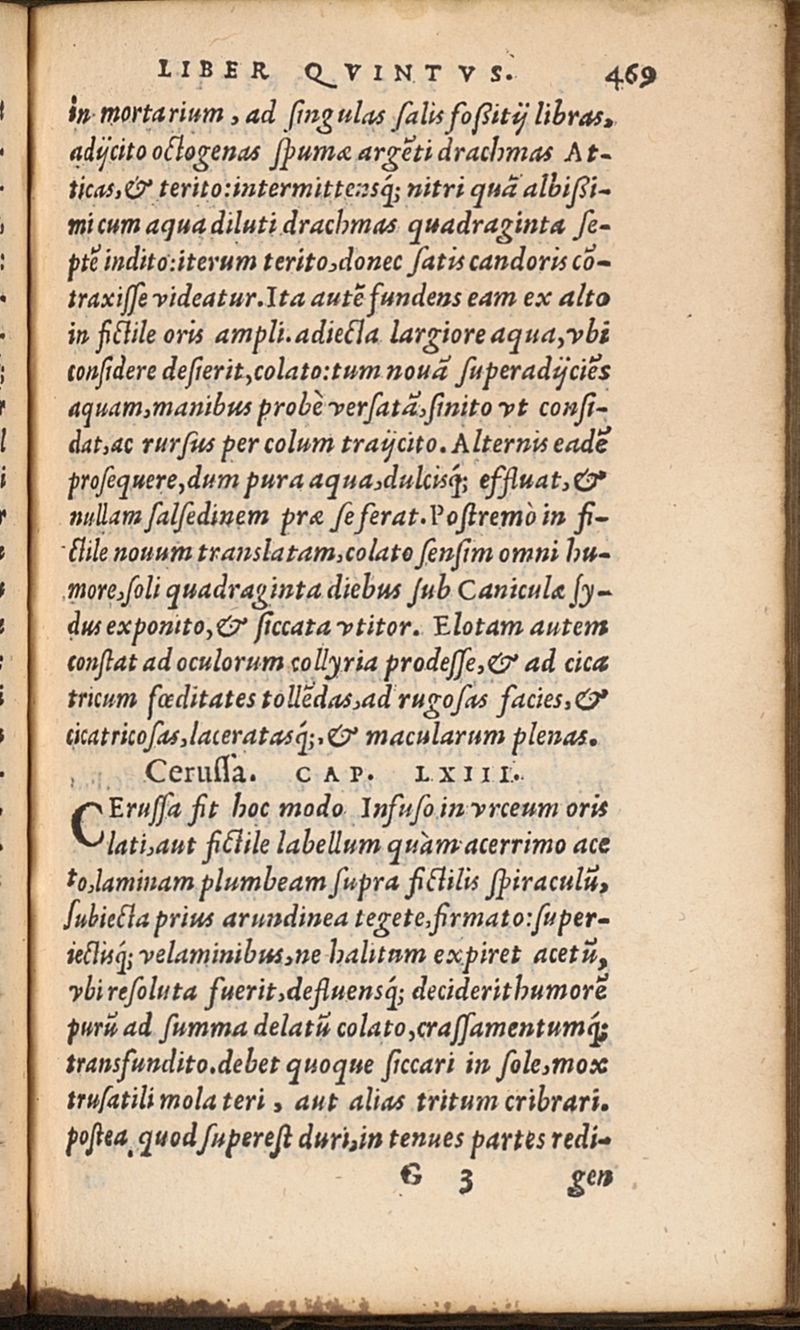 LIBER QVINTVS. 469
in mortarium, ad ſingulas ſalis foßitij libras,
adijcito octogenas ſpumæ argẽti drachmas At-
ticas, & terito: intermittensq́; nitri quã albißi-
mi cum aqua diluti drachmas quadraginta ſe-
ptẽ indito: iterum terito, donec ſatis candoris cõ-
traxiſſe videatur. Ita autẽ fundens eam ex alto
in fictile oris ampli. adiecta largiore aqua, vbi
conſidere deſierit, colato: tum nouã ſuperadijciẽs
aquam, manibus probè verſatã, ſinito vt conſi-
dat, ac rurſus per colum traijcito. Alternis eadẽ
proſequere, dum pura aqua, dulcisq́; effluat, &
nullam ſalſedinem præ ſe ferat. Poſtremò in fi-
ctile nouum translatam, colato ſenſim omni hu-
more, ſoli quadraginta diebus ſub Caniculæ ſy-
dus exponito, & ſiccata vtitor. Elotam autem
conſtat ad oculorum collyria prodeſſe, & ad cica
tricum fœditates tollẽdas, ad rugoſas facies, &
cicatricoſas, laceratasq́;, & macularum plenas.
Ceruſſa. CAP. LXIII.
CEruſſa fit hoc modo Infuſo in vrceum oris
lati, aut fictile labellum quàm acerrimo ace
to, laminam plumbeam ſupra fictilis ſpiraculũ,
ſubiecta prius arundinea tegete, firmato: ſuper-
iectisq́; velaminibus, ne halitum expiret acetũ,
vbi reſoluta fuerit, defluensq́; deciderit humorẽ
purũ ad ſumma delatũ colato, craſſamentumq́;
transfundito. debet quoque ſiccari in ſole, mox
truſatili mola teri, aut alias tritum cribrari.
poſtea quod ſupereſt duri, in tenues partes redi-
G 3 gen